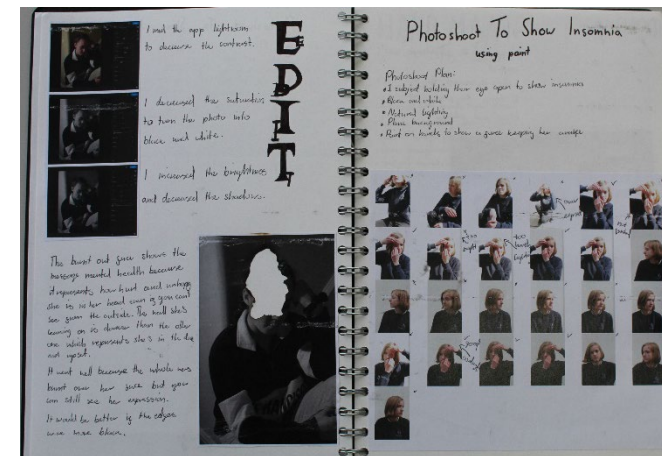 I used the app lightroom
to decrease the contrast.
EDIT
I decreased the saturation
to turn the photo into
black and white.
I increased the brightness
and decreased the shadows.
The burnt out face shows the
message mental health because
it represents how hurt and unhappy
she is in her head even if you can't
see from the outside. The wall she's
leaning on is darker than the other
one which represents she's in the
and upset.
It went well because the whole was
burnt over her face but you
can still see her expression.
It would be better if the edges
were more
Photoshoot To Show Insomnia
using paint
Photoshoot Plan:
• 1 subject holding their eye open to show insomnia
• Black and white
• Natural lighting
• Plain background
• Paint on hands to show a